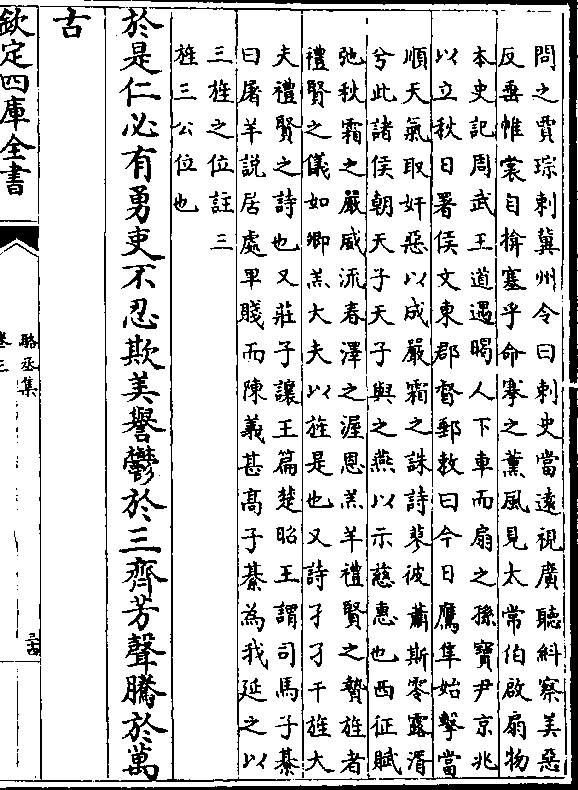 問之賈琮刺冀州令曰刺史當遠視廣聽糾察美惡
反垂帷裳自揜塞乎命搴之薰風見太常伯啟扇物
本史記周武王道遇暍人下車而扇之孫寶尹京兆
以立秋日署侯文東郡督郵敕曰今日鷹隼始擊當
順天氣取奸惡以成嚴霜之誅詩蓼彼蕭斯零露湑
兮此諸侯朝天子天子與之燕以示慈惠也西征賦
弛秋霜之嚴威流春澤之渥恩羔羊禮賢之贄旌者
禮賢之儀如卿羔大夫以旌是也又詩孑孑干旌大
夫禮賢之詩也又莊子讓王篇楚昭王謂司馬子綦
曰屠羊説居處畢賤而陳義甚高子綦為我延之以
三旌之位註三
旌三公位也
於是仁必有勇吏不忍欺美譽鬱於三齊芳聲騰於萬
古
欽定四庫全書
駱丞集
卷三